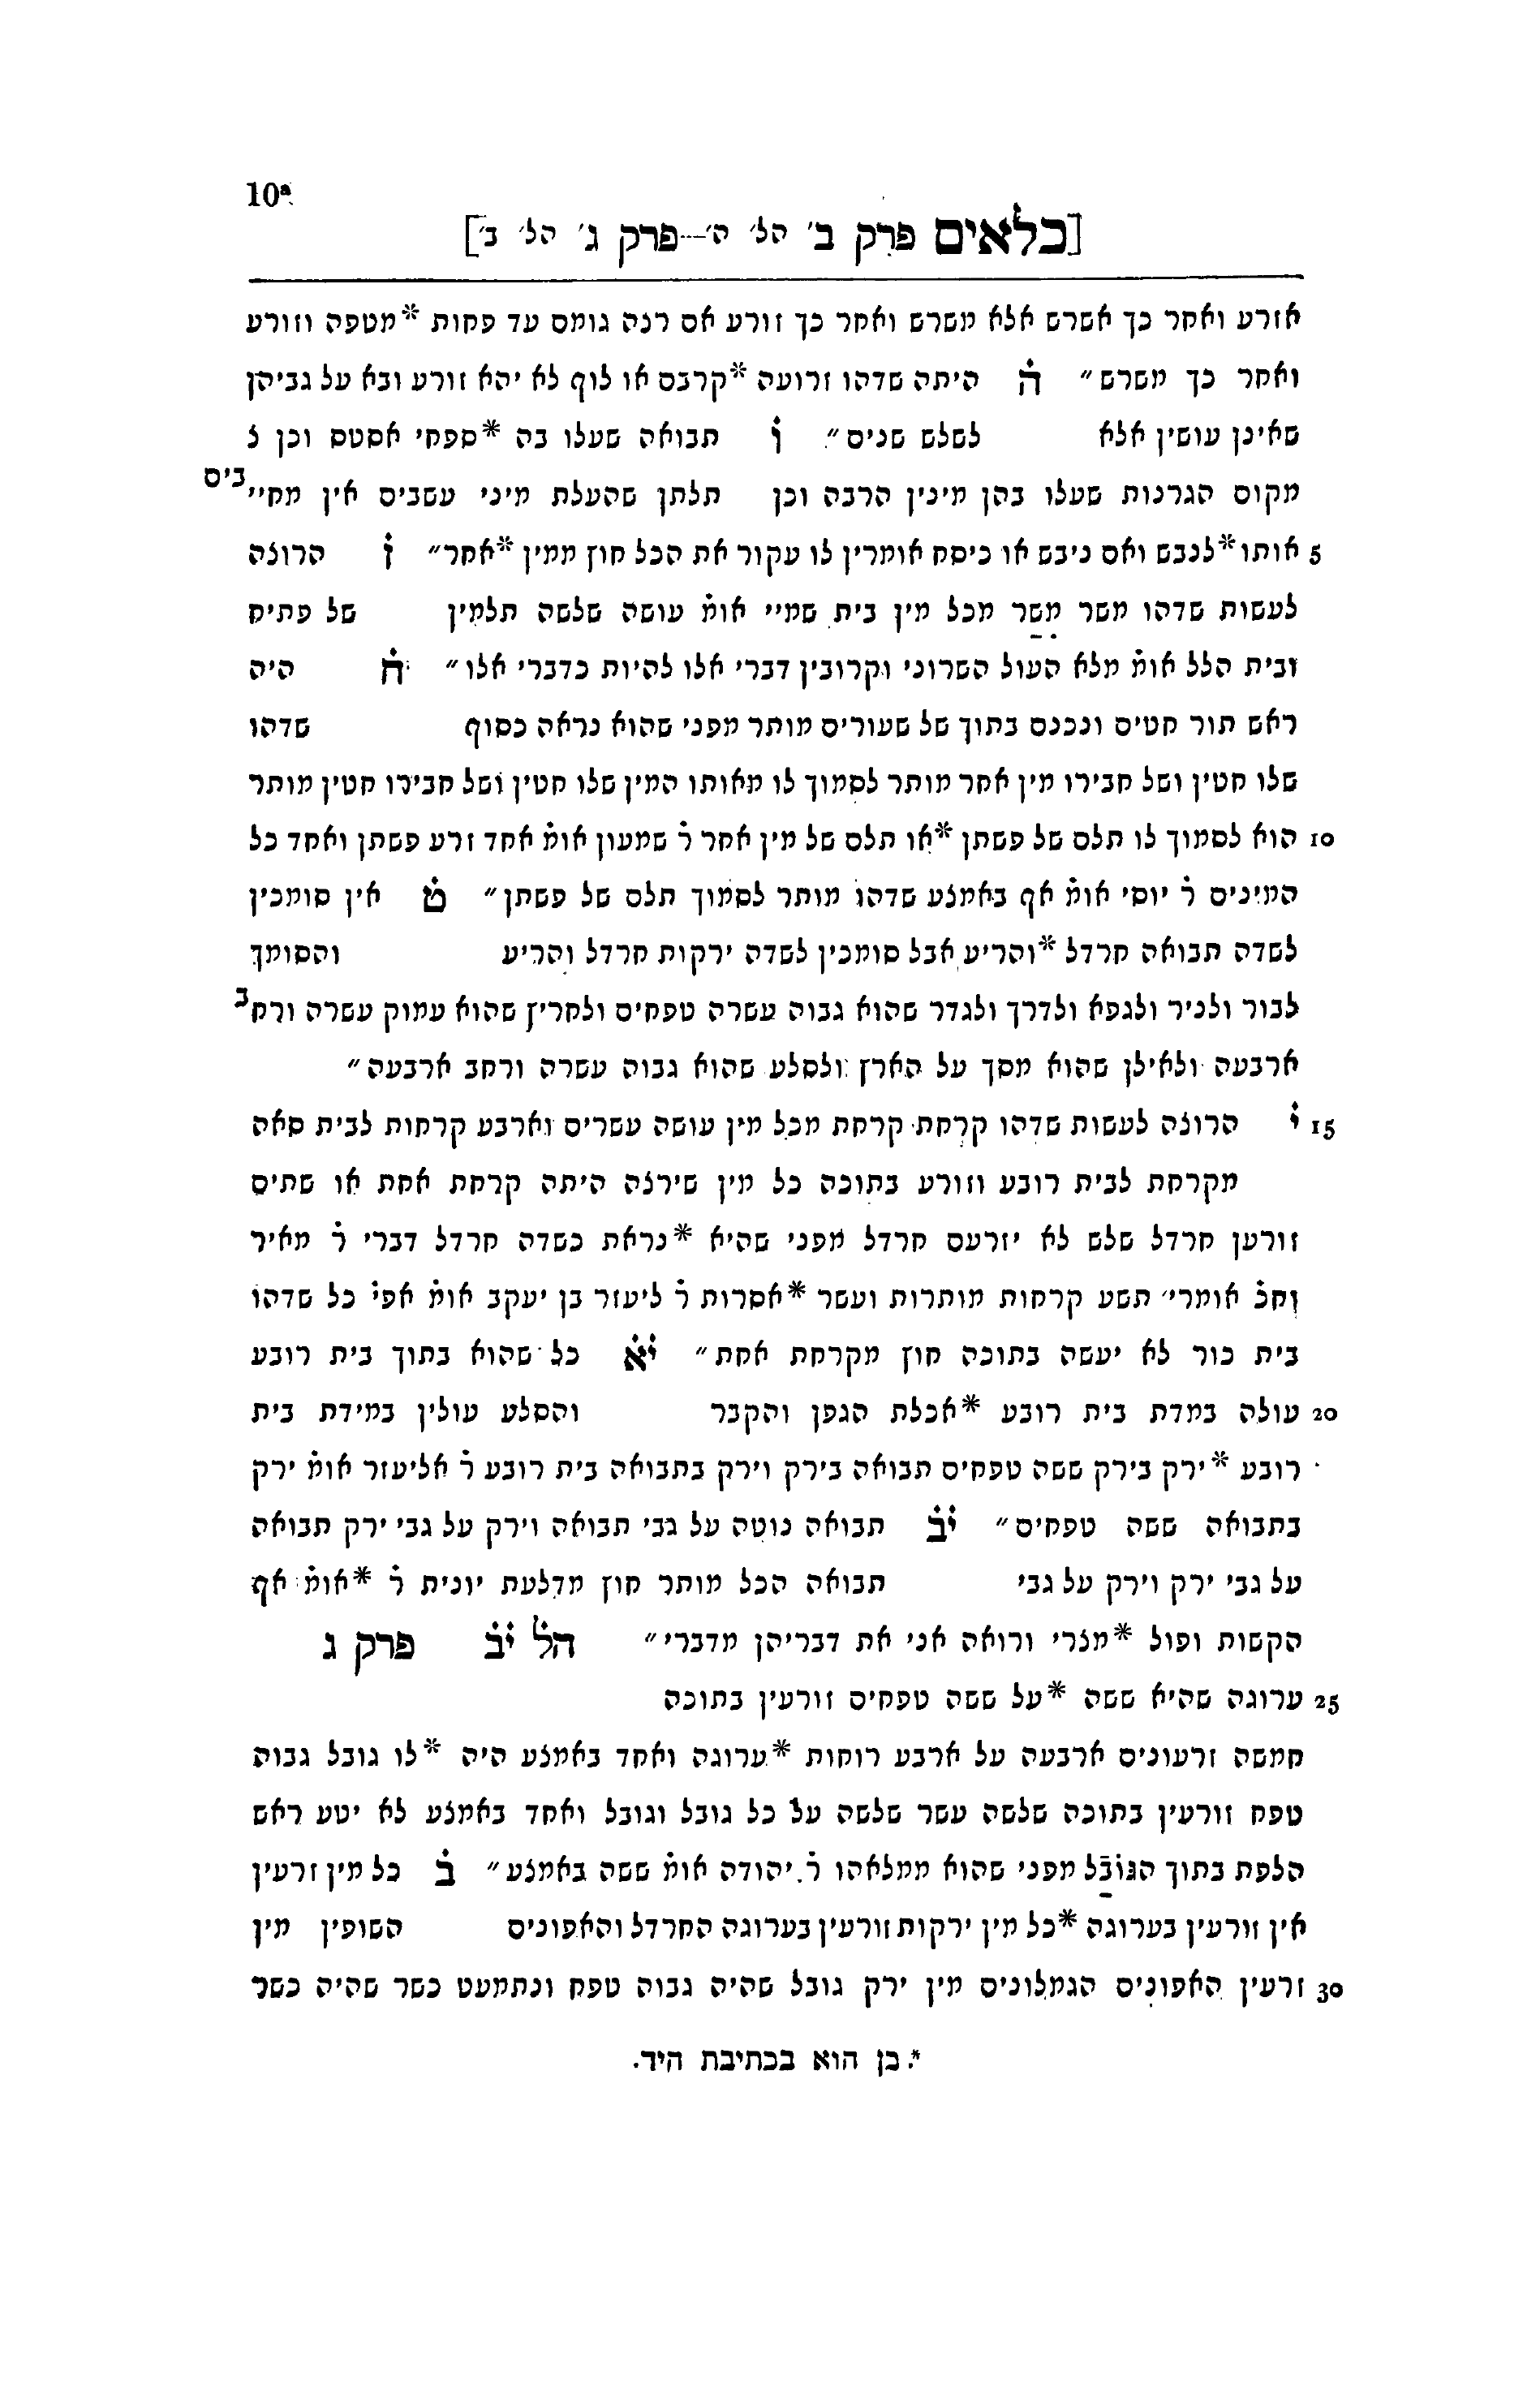 10a
[כלאים פרק ב׳ הל׳ ה׳—פרק ג׳ הל׳ ב׳]
אזרע ואחר כך אשרש אלא משרש ואחר כך זורע אם רצה גומם עד פחות *מטפה וזורע
ואחר כך משרש״ הׄ היתה שדהו זרועה *קרבס או לוף לא יהא זורע ובא על גביהן
שאינן עושין אלא לשלש שנים״ וׄ תבואה שעלו בה *ספחי אסטס וכן ל
מקום הגרנות שעלו בהן מינין הרבה וכן תלתן שהעלת מיני עשבים אין מחייבים
5 אותו *לנבש ואם ניבש או כיסח אומרין לו עקור את הכל חוץ ממין *אחר״ זׄ הרוצה
לעשות שדהו משר משר מכל מין בית שמיי אומׄ עושה שלשה תלמין של פתיח
ובית הלל אומׄ מלא העול השרוני וקרובין דברי אלו להיות כדברי אלו״ חׄ היה
ראש תור חטים ונכנס בתוך של שעורים מותר מפני שהוא נראה כסוף שדהו
שלו חטין ושל חבירו מין אחר מותר לסמוך לו מאותו המין שלו חטין ושל חבירו חטין מותר
10 הוא לסמוך לו תלם של פשתן *או תלם של מין אחר רׄ שמעון אומׄ אחד זרע פשתן ואחד כל
המינים רׄ יוסי אומׄ אף באמצע שדהו מותר לסמוך תלם של פשתן״ טׄ אין סומכין
לשדה תבואה חרדל *והריע אבל סומכין לשדה ירקות חרדל והריע והסומך
לבור ולניר ולגפא ולדרך ולגדר שהוא גבוה עשרה טפחים ולחריץ שהוא עמוק עשרה ורחב
ארבעה ולאילן שהוא מסך על הארץ ולסלע שהוא גבוה עשרה ורחב ארבעה״
15 יׄ הרוצה לעשות שדהו קרחת קרחת מכל מין עושה עשרים וארבע קרחות לבית סאה
מקרחת לבית רובע וזורע בתוכה כל מין שירצה היתה קרחת אחת או שתים
זורען חרדל שלש לא יזרעם חרדל מפני שהיא *נראת כשדה חרדל דברי רׄ מאיר
וחכׄ אומרי׳ תשע קרחות מותרות ועשר *אסרות רׄ ליעזר בן יעקב אומׄ אפיׄ כל שדהו
בית כור לא יעשה בתוכה חוץ מקרחת אחת״ יׄאׄ כל שהוא בתוך בית רובע
20 עולה במדת בית רובע *אכלת הגפן והקבר והסלע עולין במידת בית
רובע *ירק בירק ששה טפחים תבואה בירק וירק בתבואה בית רובע רׄ אליעזר אומׄ ירק
בתבואה ששה טפחים״ יׄבׄ תבואה נוטה על גבי תבואה וירק על גבי ירק תבואה
על גבי ירק וירק על גבי תבואה הכל מותר חוץ מדלעת יונית רׄ *אומׄ אף
הקשות ופול *מצרי ורואה אני את דבריהן מדברי״ הלׄ יׄבׄ פרק ג
25 ערוגה שהיא ששה *על ששה טפחים זורעין בתוכה
חמשה זרעונים ארבעה על ארבע רוחות *ערוגה ואחד באמצע היה *לו גובל גבוה
טפח זורעין בתוכה שלשה עשר שלשה על כל גובל וגובל ואחד באמצע לא יטע ראש
הלפת בתוך הגובל מפני שהוא ממלאהו רׄ יהודה אומׄ ששה באמצע״ בׄ כל מין זרעין
אין זורעין בערוגה *כל מין ירקות זורעין בערוגה החרדל והאפונים השופין מין
30 זרעין האפונים הגמלונים מין ירק גובל שהיה גבוה טפח ונתמעט כשר שהיה כשר
*. כן הוא בכתיבת היד.